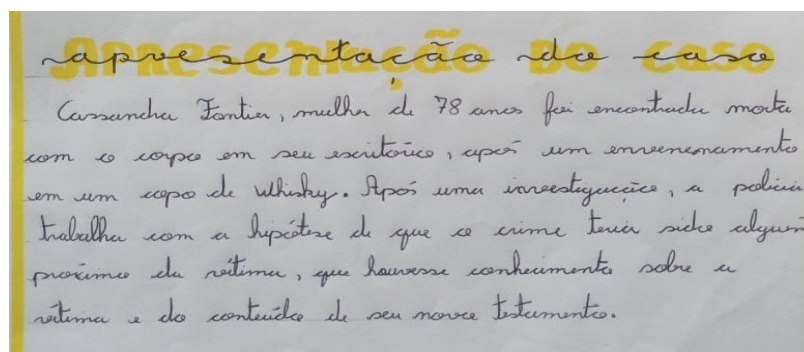 apresentação do caso
Cassandra Fontier, mulher de 78 anos foi encontrada morta
com o corpo em seu escritório, após um envenenamento
em um copo de Whisky. Após uma investigação, a polícia
trabalha com a hipótese de que o crime teria sido alguém
próximo da vítima, que houvesse conhecimento sobre a
vítima e do conteúdo de seu novo testamento.